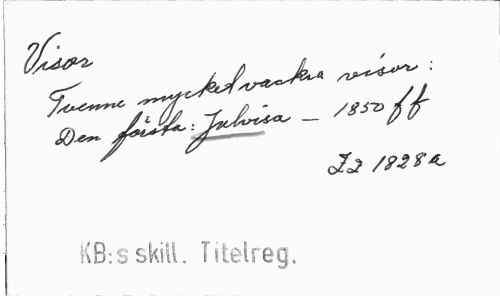 Visor
Tvenne mycket vackra visor:
Den första: Julvisa - 1850 ff
Zz 1828a
KB:s skill. Titelreg.